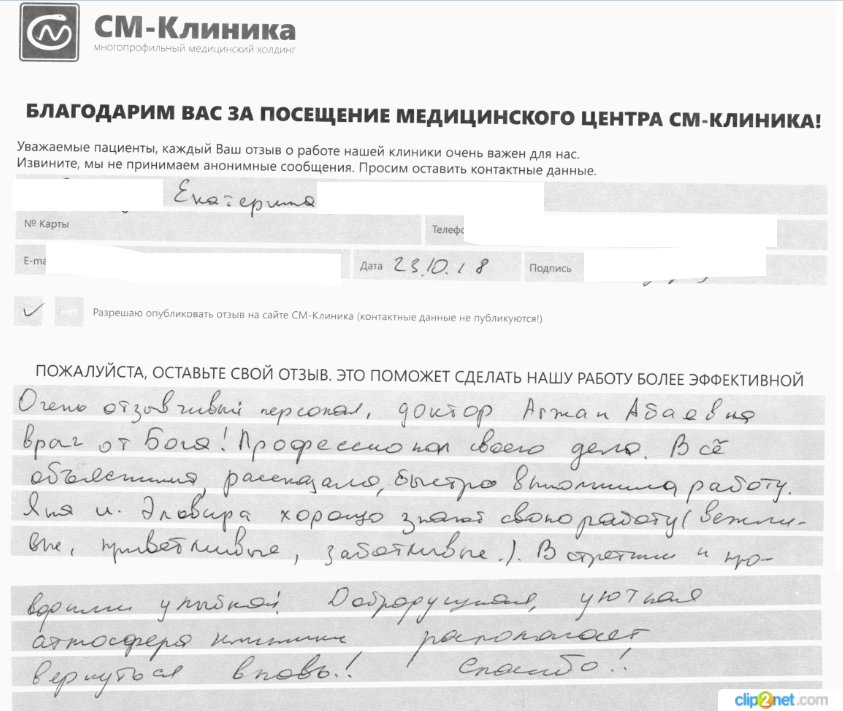 СМ-Клиника
многопрофильный медицинский холдинг
БЛАГОДАРИМ ВАС ЗА ПОСЕЩЕНИЕ МЕДИЦИНСКОГО ЦЕНТРА СМ-КЛИНИКА!
Уважаемые пациенты, каждый Ваш отзыв о работе нашей клиники очень важен для нас.
Извините, мы не принимаем анонимные сообщения. Просим оставить контактные данные.
Екатерина
№ Карты Телефо
E-ma Дата 23.10.18 Подпись
нет Разрешаю опубликовать отзыв на сайте СМ-Клиника (контактные данные не публикуются!)
ПОЖАЛУЙСТА, ОСТАВЬТЕ СВОЙ ОТЗЫВ. ЭТО ПОМОЖЕТ СДЕЛАТЬ НАШУ РАБОТУ БОЛЕЕ ЭФФЕКТИВНОЙ
Очень отзывчивый персонал, доктор Абаевна
врач от Бога! Профессионал своего дела. Всё
объяснила, рассказала, быстро выполнила работу.
и Эльвира хорошо знают свою работу (вежли-
вые, приветливые, заботливые.). Встретили и про-
водили улыбкой! Добродушная, уютная
атмосфера клиники располагает
вернуться вновь!! Спасибо!!
clip2net.com